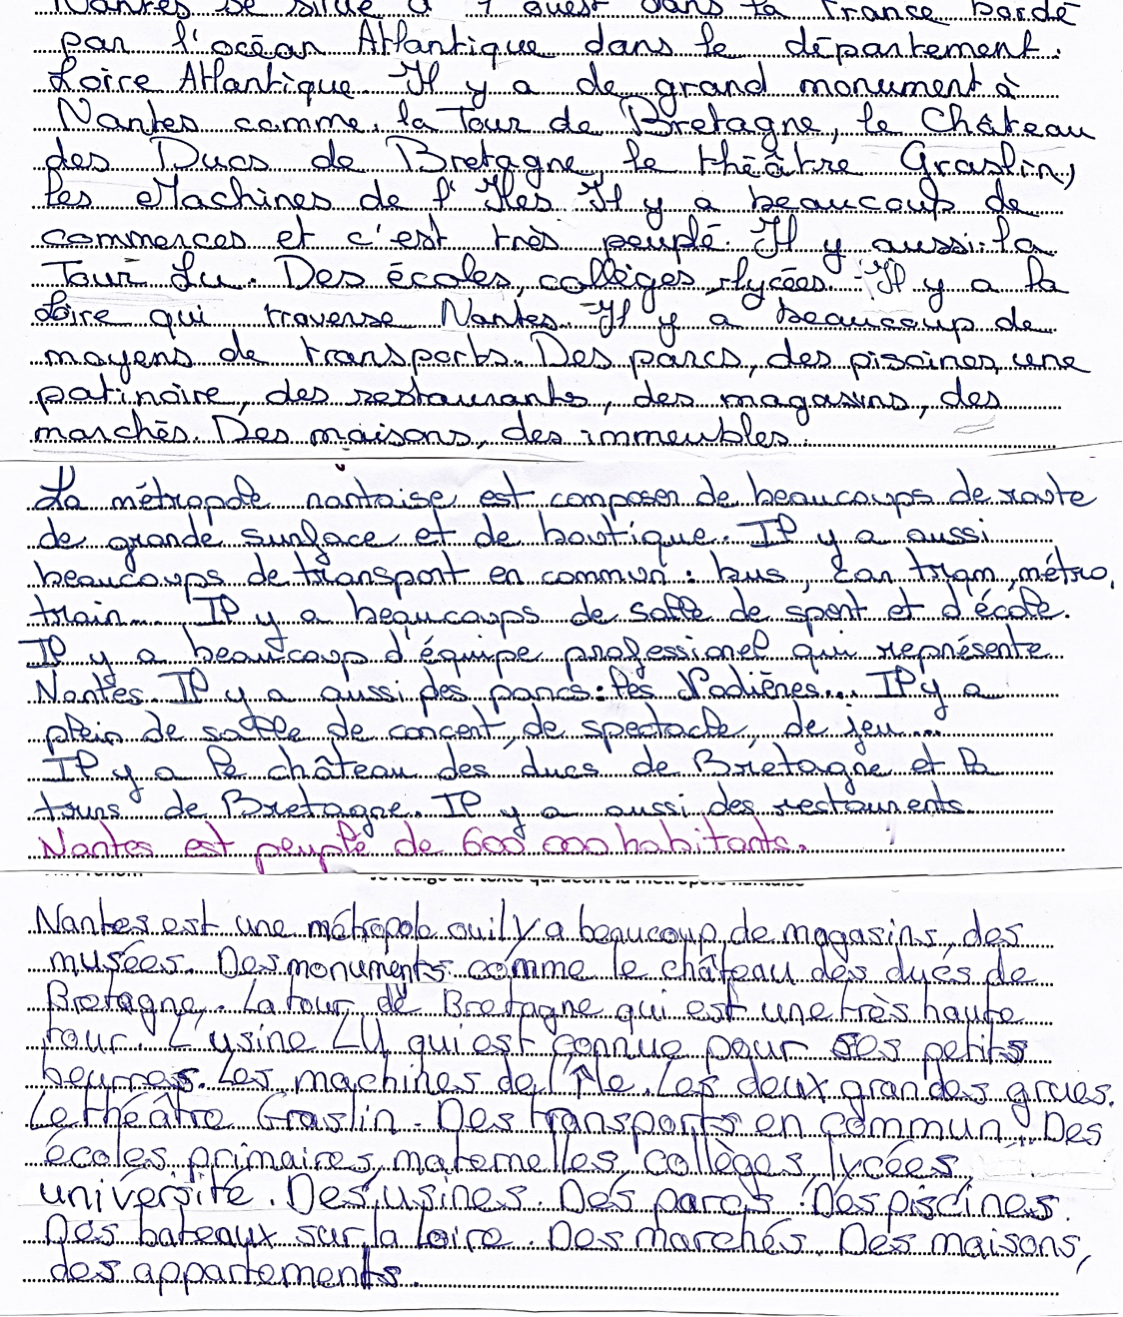 Nantes se situe à l'ouest dans la France bordé
par l'océan Atlantique dans le département.
Loire Atlantique. Il y a de grand monument à
Nantes comme la Tour de Bretagne, le Château
des Ducs de Bretagne, le théâtre Graslin,
les Machines de l'Iles. Il y a beaucoup de
commerces et c'est très peuplé. Il y aussi la
Tour Lu. Des écoles, collèges, lycées. Il y a la
Loire qui traverse Nantes. Il y a beaucoup de
moyens de transports. Des parcs, des piscines, une
patinoire, des restaurants, des magasins, des
marchés. Des maisons, des immeubles.
La métropole nantaise est composer de beaucoups de route
de grande surface et de boutique. Il y a aussi
beaucoups de transport en commun : bus, car tram, métro,
train... Il y a beaucoups de salle de sport et d'école.
Il y a beaucoup d'équipe professionel qui représente
Nantes. Il y a aussi des parcs : les Nodières... Il y a
plein de salle de concert, de spectacle, de jeu....
Il y a le château des ducs de Bretagne et la
tours de Bretagne. Il y a aussi des restaurents.
Nantes est peuplé de 600 000 habitants.
Nantes est une métropole ou il y a beaucoup de magasins, des
musées. Des monuments comme le château des ducs de
Bretagne. La tour de Bretagne qui est une très haute
tour. L'usine LU qui est connue pour ses petits
beurres. Les machines de l'île. Les deux grandes grues.
Le théâtre Graslin. Des transports en commun. Des
écoles, primaires, maternelles, collèges, lycées,
université. Des usines. Des parcs. Des piscines.
Des bateaux sur la Loire. Des marchés. Des maisons,
des appartements.